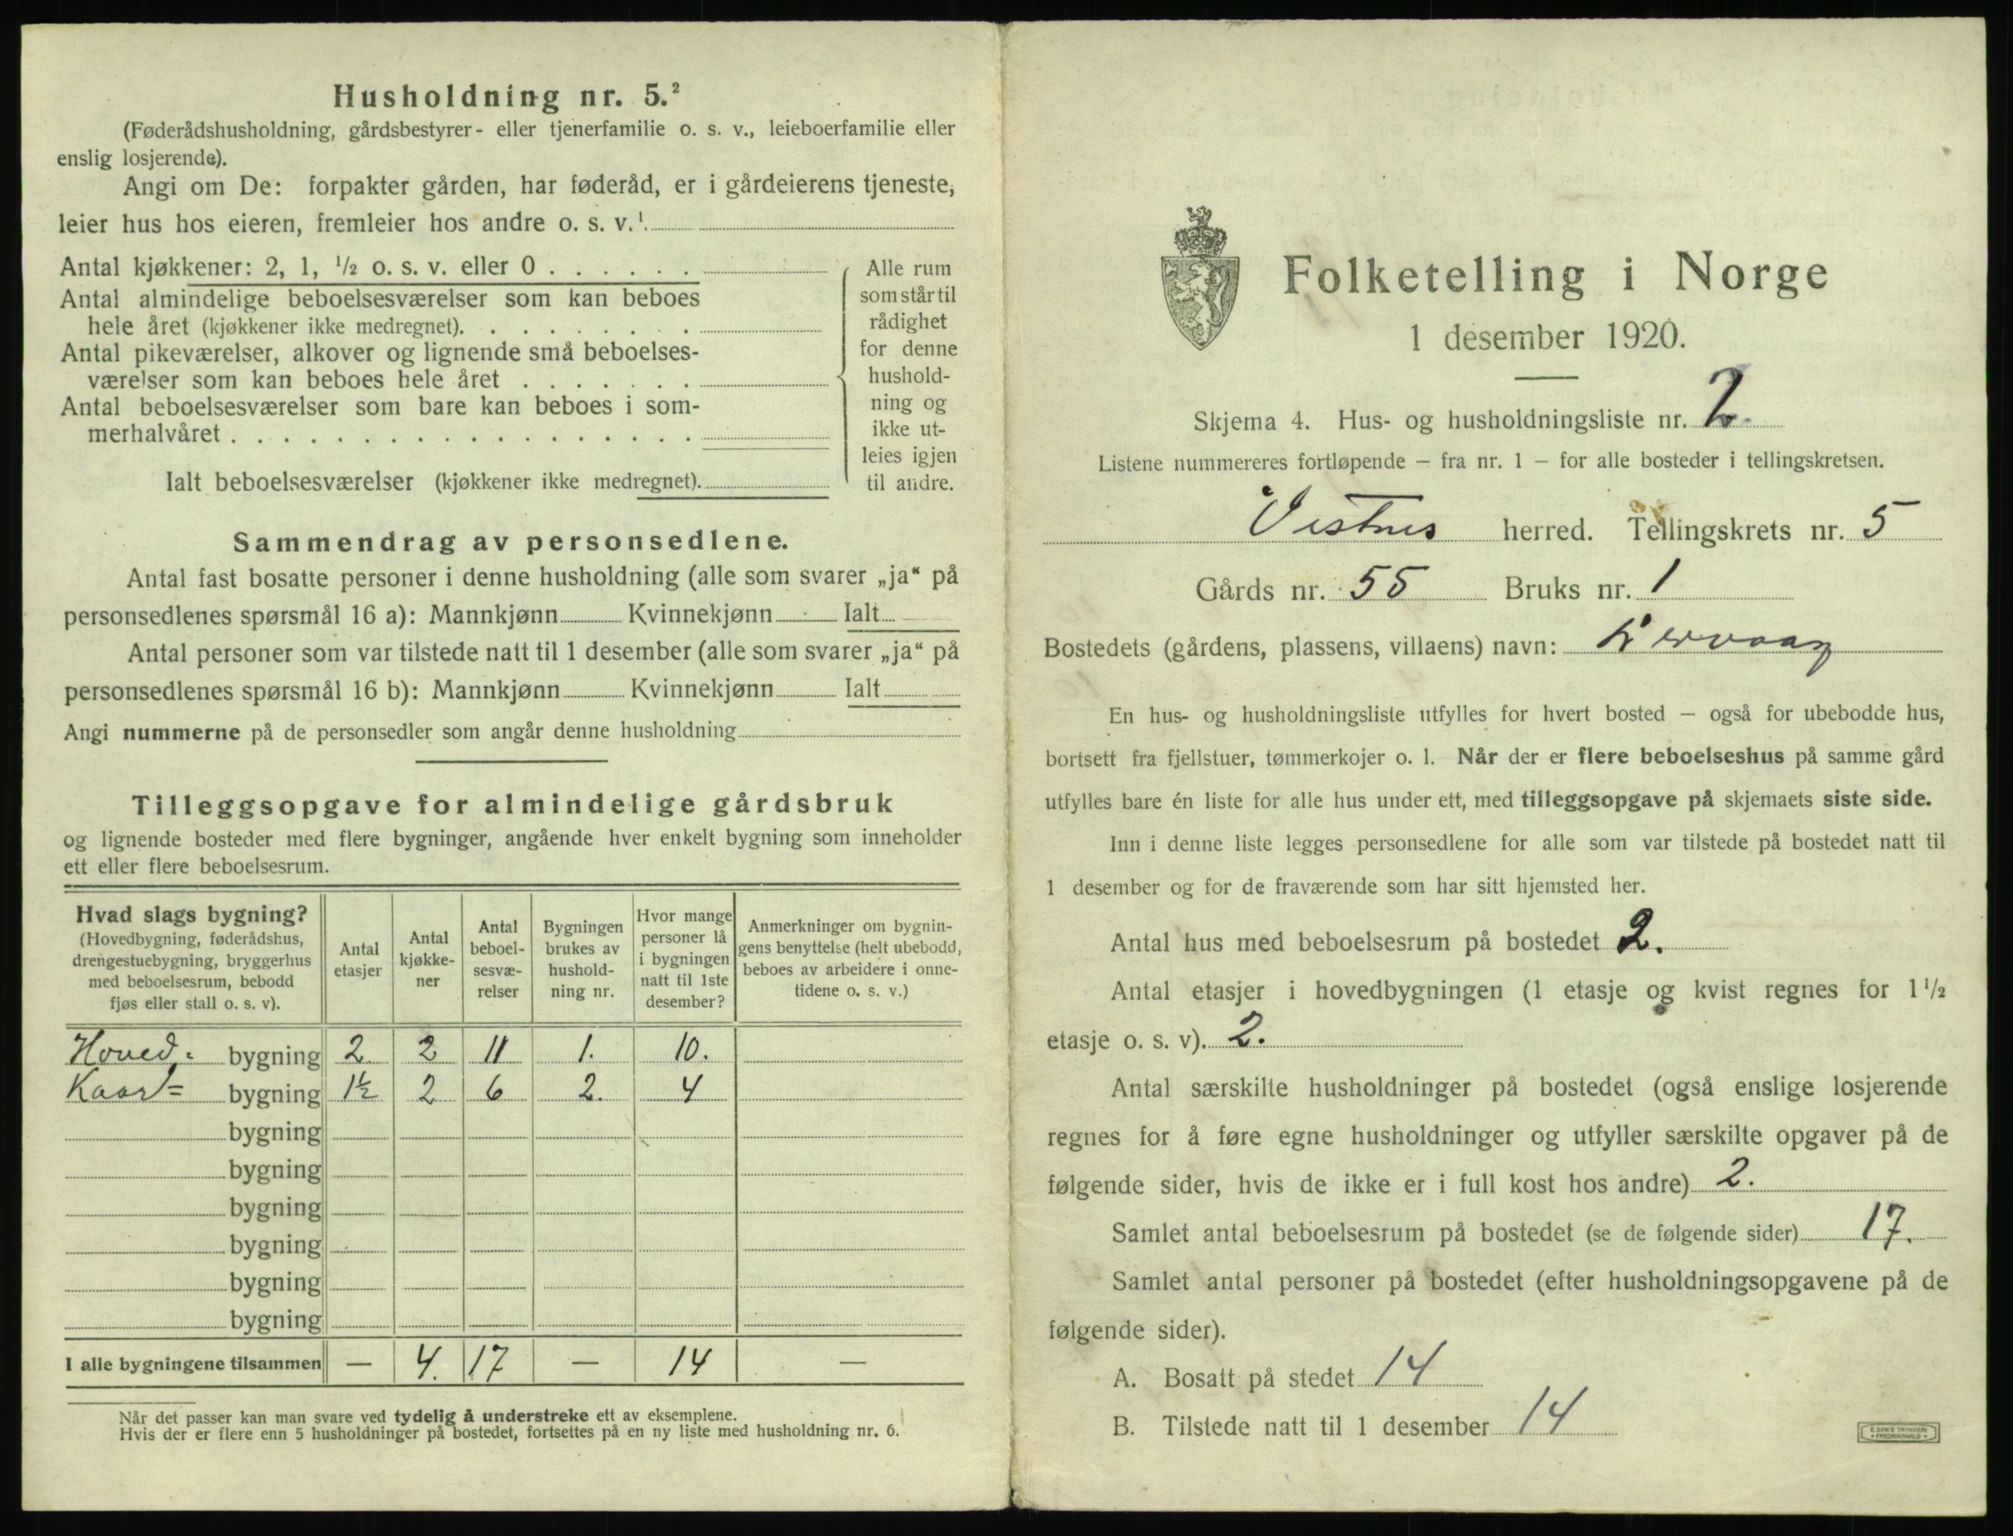 Husholdning nr. 5.²
(Føderådshusholdning, gårdsbestyrer- eller tjenerfamilie o. s. v., leieboerfamilie eller
enslig losjerende).
Angi om De: forpakter gården, har føderåd, er i gårdeierens tjeneste,
leier hus hos eieren, fremleier hos andre o. s. v.¹
Antal kjøkkener: 2, 1, ½ o. s. v. eller 0 . . . . . .
Antal almindelige beboelsesværelser som kan beboes
hele året (kjøkkener ikke medregnet). . . . . . . .
Antal pikeværelser, alkover og lignende små beboelses-
værelser som kan beboes hele året . . . . . . .
Antal beboelsesværelser som bare kan beboes i som-
merhalvåret . . . . . . . . . . . . . . . . . .
Ialt beboelsesværelser (kjøkkener ikke medregnet).
Alle rum
som står til
rådighet
for denne
hushold-
ning og
ikke ut-
leies igjen
til andre.
Sammendrag av personsedlene.
Antal fast bosatte personer i denne husholdning (alle som svarer „ja“ på
personsedlenes spørsmål 16 a): Mannkjønn Kvinnekjønn Ialt
Antal personer som var tilstede natt til 1 desember (alle som svarer „ja“ på
personsedlenes spørsmål 16 b): Mannkjønn Kvinnekjønn Ialt
Angi nummerne på de personsedler som angår denne husholdning
Tilleggsopgave for almindelige gårdsbruk
og lignende bosteder med flere bygninger, angående hver enkelt bygning som inneholder
ett eller flere beboelsesrum.
Hvad slags bygning?
(Hovedbygning, føderådshus,
drengestuebygning, bryggerhus
med beboelsesrum, bebodd
fjøs eller stall o. s. v).
Antal
etasjer
Antal
kjøkke-
ner
Antal
beboel-
sesvæ-
relser
Bygningen
brukes av
hushold-
ning nr.
Hvor mange
personer lå
i bygningen
natt til 1ste
desember?
Anmerkninger om bygnin-
gens benyttelse (helt ubebodd,
beboes av arbeidere i onne-
tidene o. s. v.)
Hoved- bygning 2 2 11 1. 10.
Kaar= bygning 1½ 2 6 2. 4
bygning
bygning
bygning
bygning
bygning
bygning
I alle bygningene tilsammen — 4. 17 — 14 —
Når det passer kan man svare ved tydelig å understreke ett av eksemplene.
Hvis der er flere enn 5 husholdninger på bostedet, fortsettes på en ny liste med husholdning nr. 6.
Folketelling i Norge
1 desember 1920.
Skjema 4. Hus- og husholdningsliste nr. 2.
Listene nummereres fortløpende – fra nr. 1 – for alle bosteder i tellingskretsen.
Vestnes herred. Tellingskrets nr. 5
Gårds nr. 55 Bruks nr. 1
Bostedets (gårdens, plassens, villaens) navn:
En hus- og husholdningsliste utfylles for hvert bosted – også for ubebodde hus,
bortsett fra fjellstuer, tømmerkojer o. l. Når der er flere beboelseshus på samme gård
utfylles bare én liste for alle hus under ett, med tilleggsopgave på skjemaets siste side.
Inn i denne liste legges personsedlene for alle som var tilstede på bostedet natt til
1 desember og for de fraværende som har sitt hjemsted her.
Antal hus med beboelsesrum på bostedet 2.
Antal etasjer i hovedbygningen (1 etasje og kvist regnes for 1½
etasje o. s. v). 2.
Antal særskilte husholdninger på bostedet (også enslige losjerende
regnes for å føre egne husholdninger og utfyller særskilte opgaver på de
følgende sider, hvis de ikke er i full kost hos andre) 2.
Samlet antal beboelsesrum på bostedet (se de følgende sider) 17.
Samlet antal personer på bostedet (efter husholdningsopgavene på de
følgende sider).
A. Bosatt på stedet 14
B. Tilstede natt til 1 desember 14